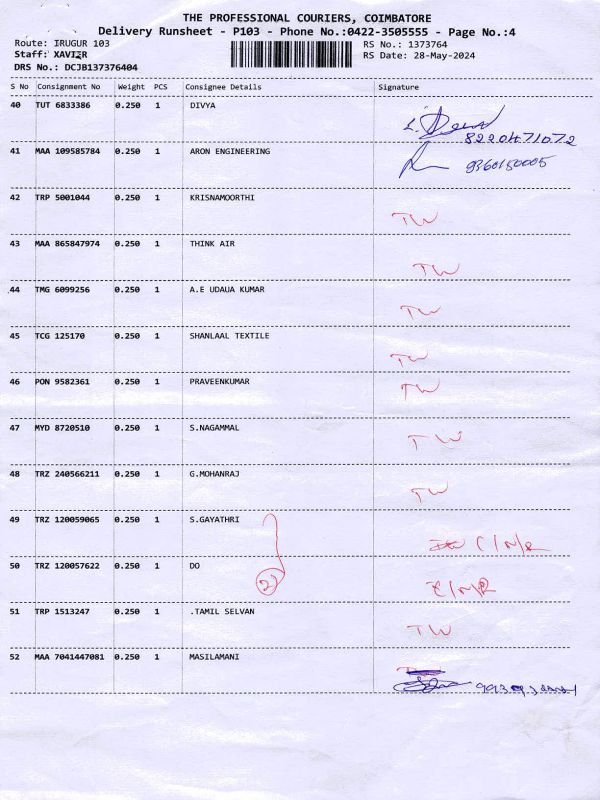 THE PROFESSIONAL COURIERS, COIMBATORE
Delivery Runsheet - P103 - Phone No.:0422-3505555 - Page No.:4
Route: IRUGUR 103 RS No.: 1373764
Staff: XAVIER RS Date: 28-May-2024
DRS No.: DCJB137376404
S No Consignment No Weight PCS Consignee Details Signature
40 TUT 6833386 0.250 1 DIVYA
8220471072
41 MAA 109585784 0.250 1 ARON ENGINEERING
9360150005
42 TRP 5001044 0.250 1 KRISNAMOORTHI
TW
43 MAA 865847974 0.250 1 THINK AIR
TW
44 TMG 6099256 0.250 1 A.E UDAUA KUMAR
TW
45 TCG 125170 0.250 1 SHANLAAL TEXTILE
TW
46 PON 9582361 0.250 1 PRAVEENKUMAR
TW
47 MYD 8720510 0.250 1 S.NAGAMMAL
TW
48 TRZ 240566211 0.250 1 G.MOHANRAJ
TW
49 TRZ 120059065 0.250 1 S.GAYATHRI
C/N/R
50 TRZ 120057622 0.250 1 DO
2 C/N/R
51 TRP 1513247 0.250 1 .TAMIL SELVAN
TW
52 MAA 7041447081 0.250 1 MASILAMANI